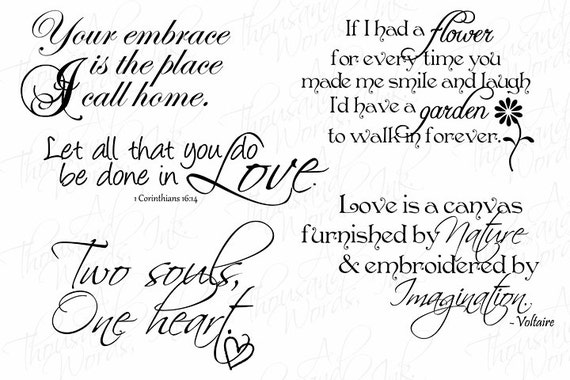 Your embrace
is the place
I call home.
If I had a flower
for every time you
made me smile and laugh
I'd have a garden
to walk in forever.
Let all that you do
be done in Love.
1 Corinthians 16:14
Love is a canvas
furnished by Nature
& embroidered by
Imagination.
- Voltaire
Two souls,
One heart.